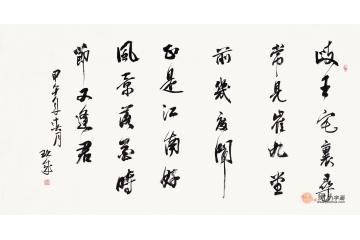 岐王宅裏尋
常見崔九堂
前幾度聞
正是江南好
風景落花時
節又逢君
甲午年春月